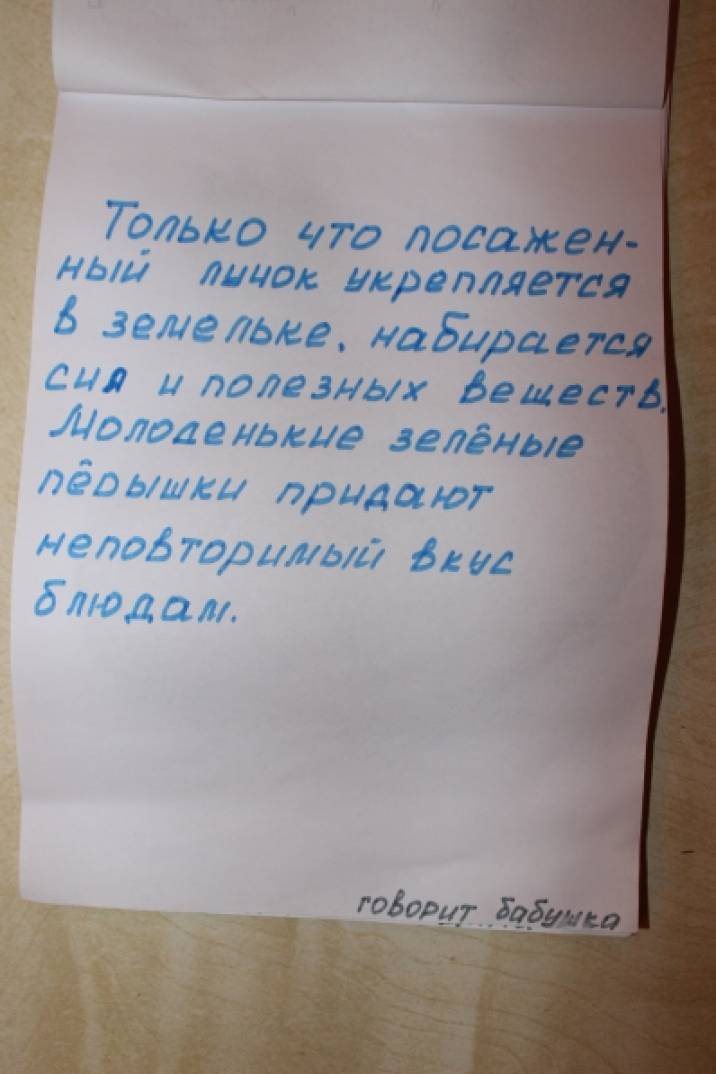 Только что посажен-
ный лучок укрепляется
в земельке, набирается
сил и полезных веществ.
Молоденькие зелёные
пёрышки придают
неповторимый вкус
блюдам.
говорит бабушка